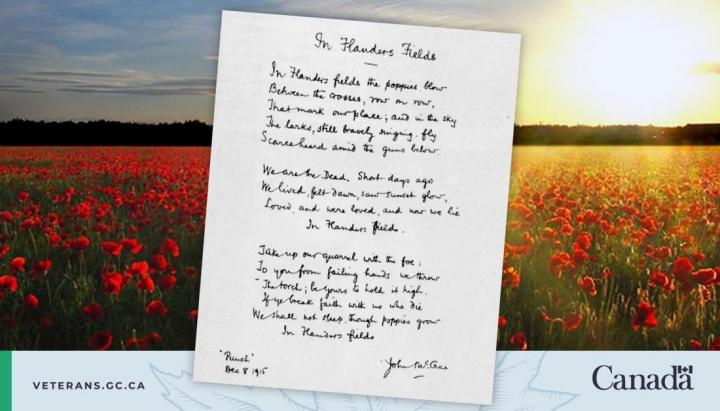 In Flanders Fields
In Flanders fields the poppies blow
Between the crosses, row on row,
That mark our place; and in the sky
The larks, still bravely singing, fly
Scarce heard amid the guns below.
We are the Dead. Short days ago
We lived, felt dawn, saw sunset glow,
Loved, and were loved, and now we lie
In Flanders fields.
Take up our quarrel with the foe:
To you from failing hands we throw
The torch; be yours to hold it high.
If ye break faith with us who die
We shall not sleep, though poppies grow
In Flanders fields
"Punch"
Dec 8 1915
John McCrae
VETERANS.GC.CA
Canada